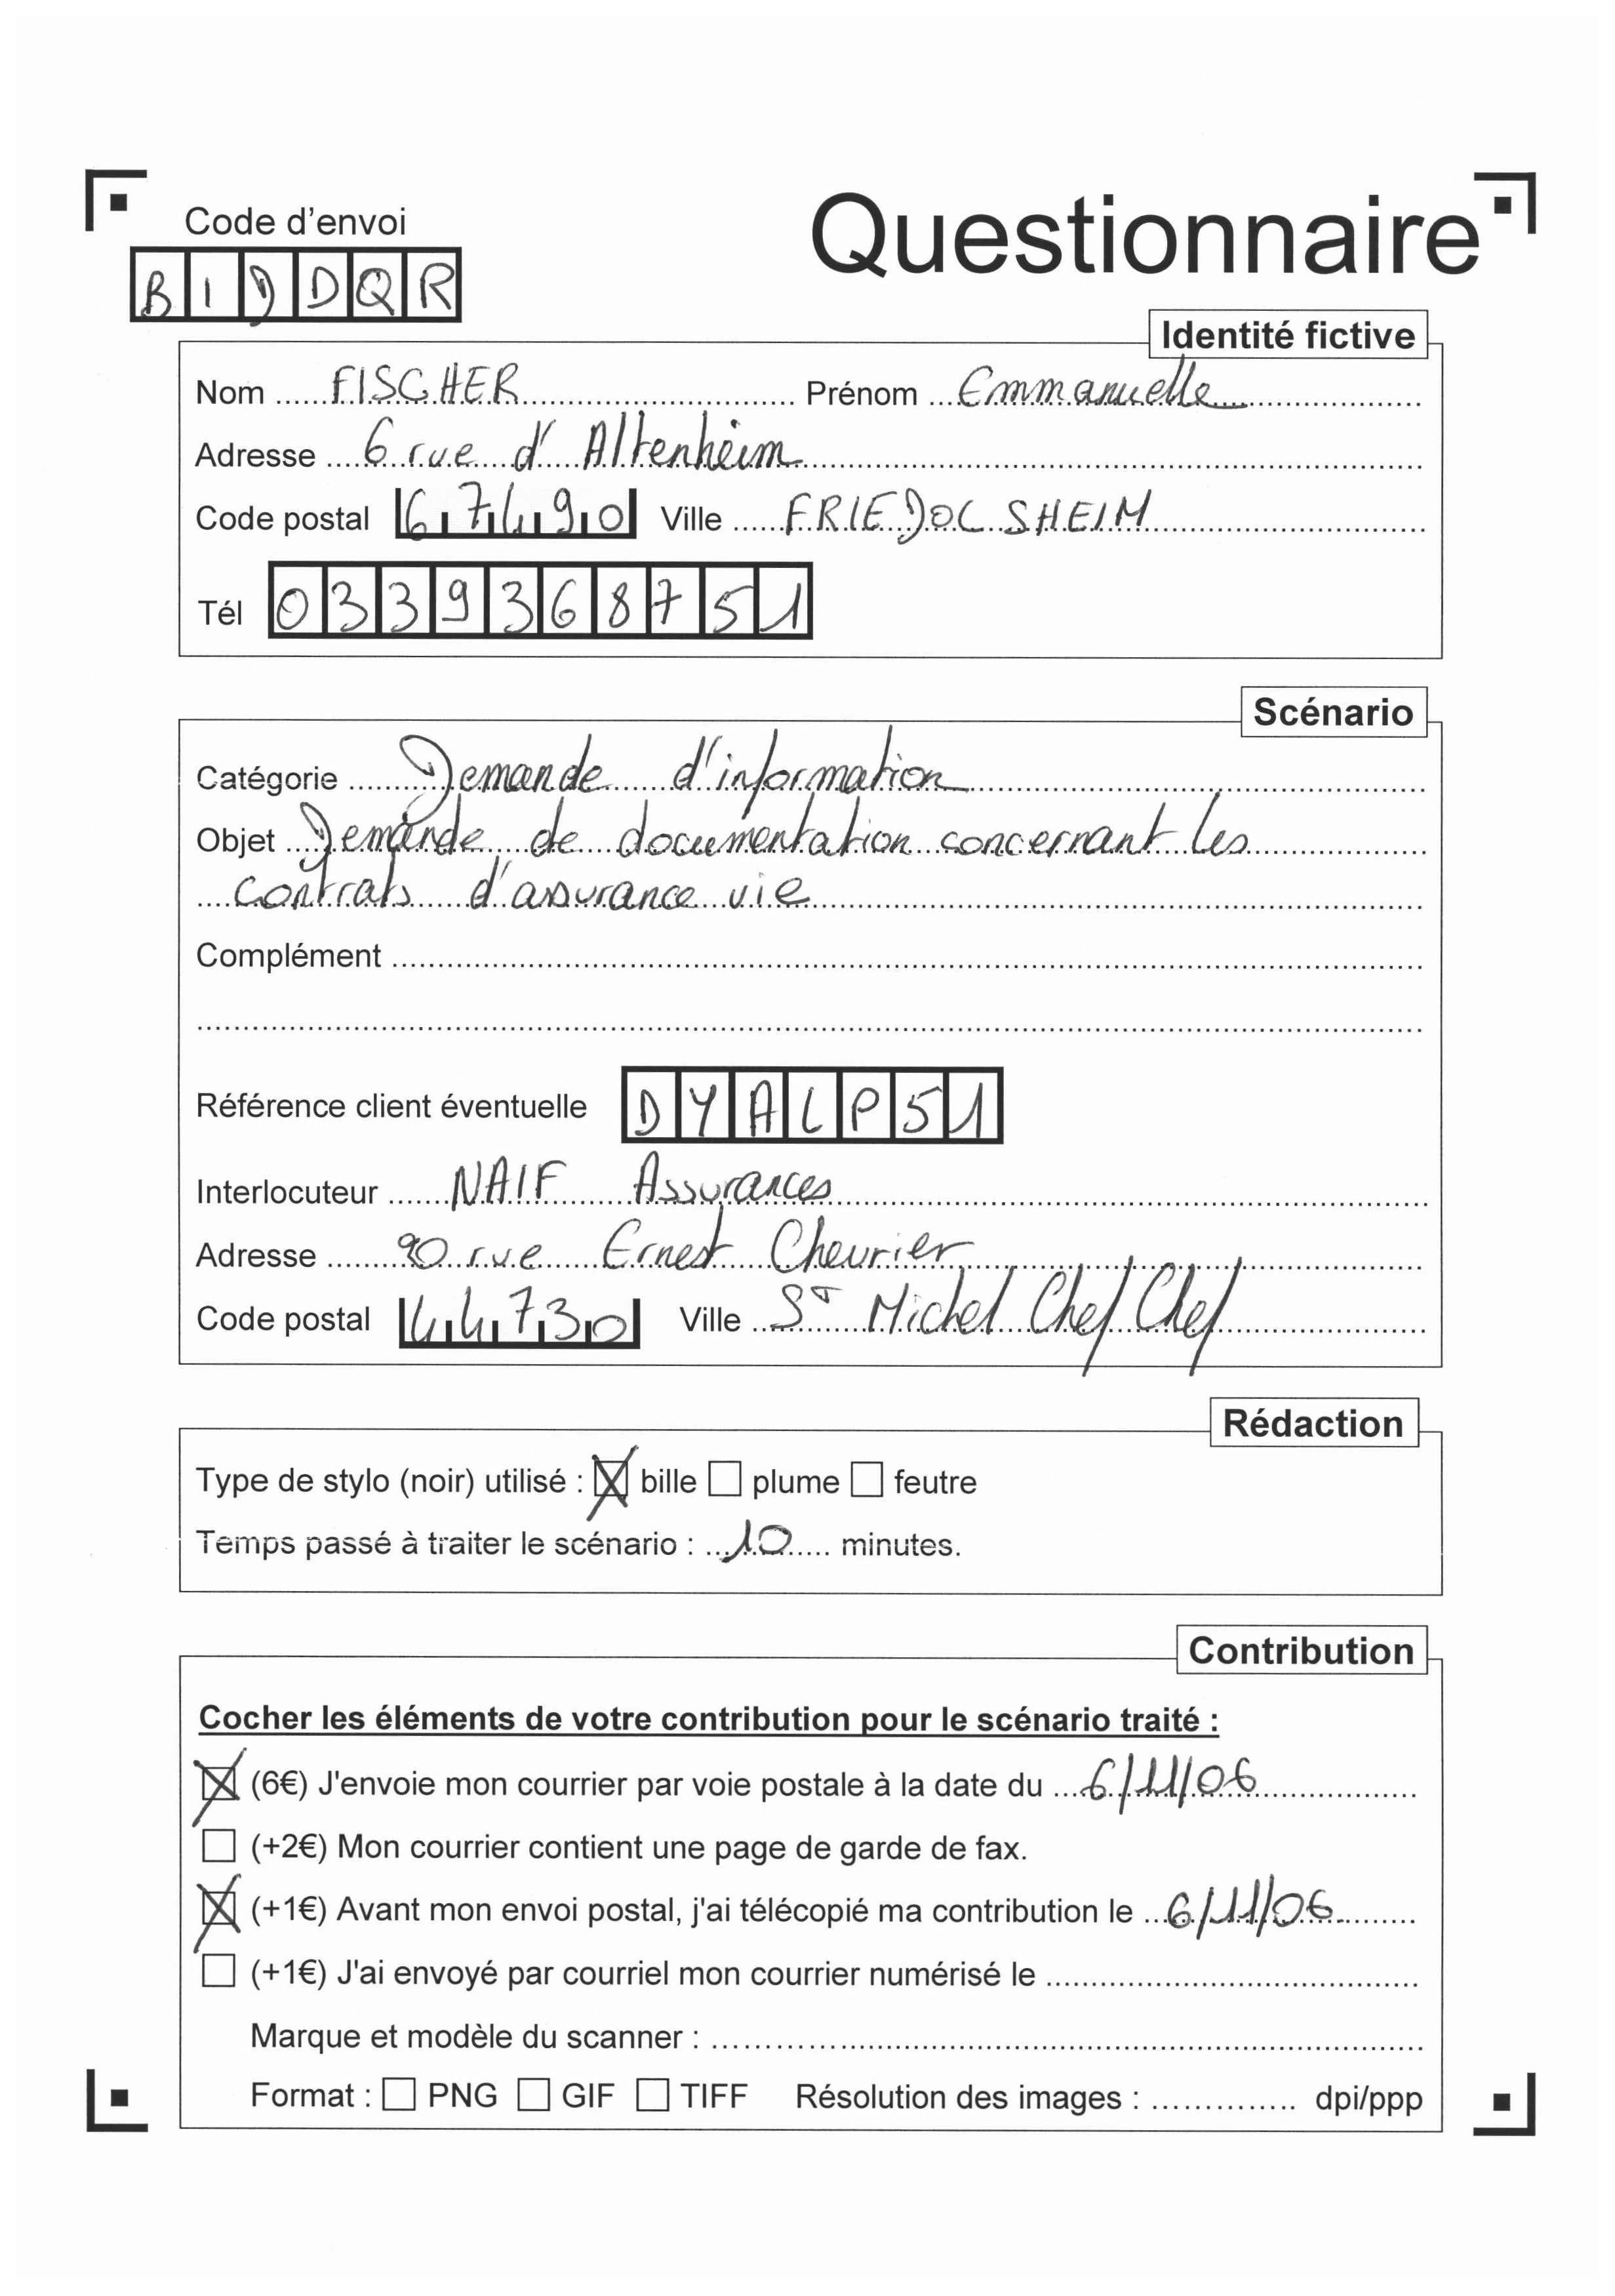 Code d'envoi
Questionnaire
BIDDQR
Identité fictive
Nom FISCHER Prénom Emmanuelle
Adresse 6 rue d'Altenheim
Code postal 67490 Ville FRIEDOLSHEIM
Tél 0339368751
Scénario
Catégorie Demande d'information
Objet Demande de documentation concernant les
contrats d'assurance vie
Complément
Référence client éventuelle DYALP51
Interlocuteur NAIF Assurances
Adresse 90 rue Ernest Chevrier
Code postal 44730 Ville St Michel Chef Chef
Rédaction
Type de stylo (noir) utilisé : bille plume feutre
Temps passé à traiter le scénario : 10 minutes.
Contribution
Cocher les éléments de votre contribution pour le scénario traité :
(6€) J'envoie mon courrier par voie postale à la date du 6/11/06
(+2€) Mon courrier contient une page de garde de fax.
(+1€) Avant mon envoi postal, j'ai télécopié ma contribution le 6/11/06
(+1€) J'ai envoyé par courriel mon courrier numérisé le
Marque et modèle du scanner :
Format : PNG GIF TIFF Résolution des images : dpi/ppp